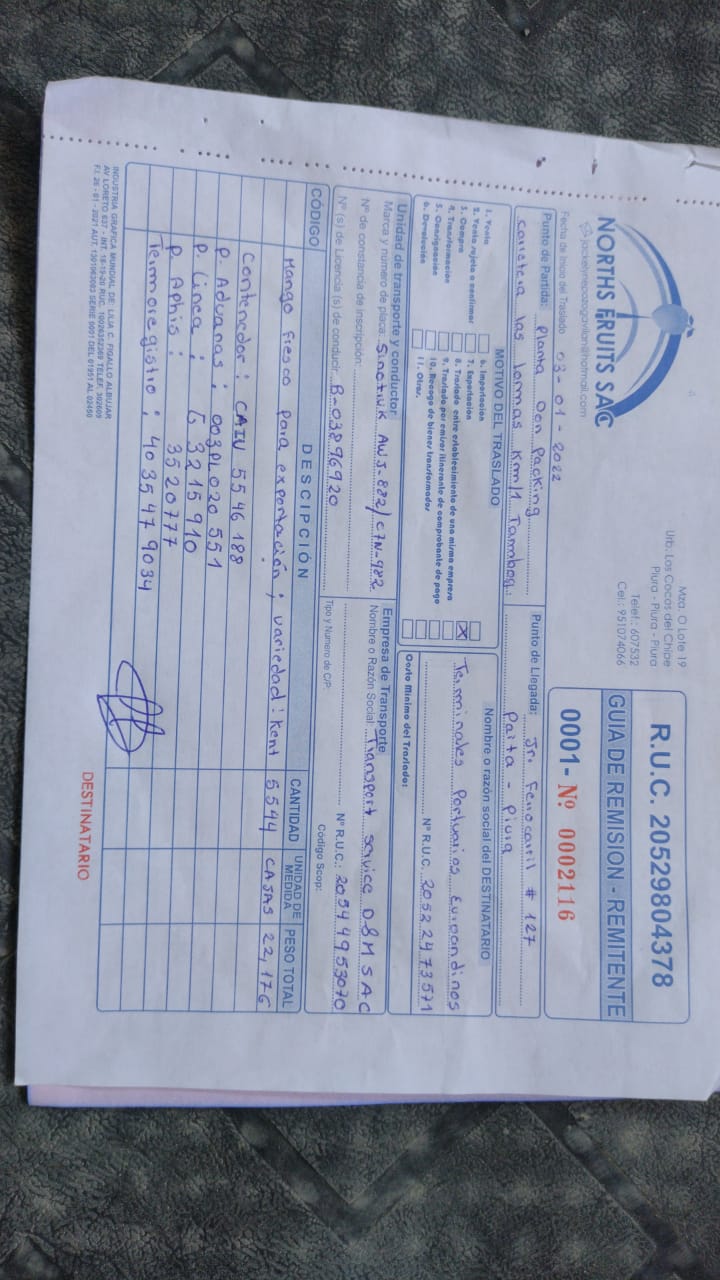 NORTHS FRUITS SAC
jackelynepozogavilan@hotmail.com
Mza. O Lote 19
Urb. Los Cocos del Chipe
Piura - Piura - Piura
Telef.: 607532
Cel.: 951074066
R.U.C. 20529804378
GUIA DE REMISION - REMITENTE
0001- Nº 0002116
Fecha de Inicio del Traslado 03-01-2022
Punto de Partida: Planta Don Packing
carretera las lomas Km11 Tambog.
Punto de Llegada: Jr. Ferrocarril # 127
Paita - Piura
MOTIVO DEL TRASLADO
1. Venta
2. Venta sujeta a confirmar
3. Compra
4. Transformación
5. Consignación
6. Devolución
6. Importación
7. Exportación
8. Traslado entre establecimiento de una misma empresa
9. Traslado por emisor itinerante de comprobante de pago
10. Recogo de bienes transformados
11. Otros.
X
Nombre o razón social del DESTINATARIO
Terminales Portuarios Euroandinos
Nº R.U.C. 20522473571
Costo Mínimo del Traslado:
Unidad de transporte y conductor
Marca y número de placa: Sinotruk AWJ-882/C7N-982
Nº de constancia de inscripción:
Nº (s) de Licencia (s) de conducir: B-03896920
Empresa de Transporte
Nombre o Razón Social: Transport service D&M SAC
Nº R.U.C.: 20544953070
Tipo y Número de C/P:
Código Scop:
CÓDIGO DESCIPCIÓN CANTIDAD UNIDAD DE MEDIDA PESO TOTAL
Mango fresco para exportación; variedad: Kent 5544 CAJAS 22,176
Contenedor: CAIU 5546188
P. Aduanas: 003PL020551
P. Linea: 3215910
P. Aphis: 3520777
Termoregistro: 4035479034
INDUSTRIA GRAFICA MUNDIAL DE: LILIA C. PIGALLO ALBUJAR
AV LORETO 637 - INT. 18-19-20 RUC. 10026352369 TELEF. 302609
F.I. 26 - 01 - 2021 AUT. 1301963083 SERIE 0001 DEL 01951 AL 02450
DESTINATARIO